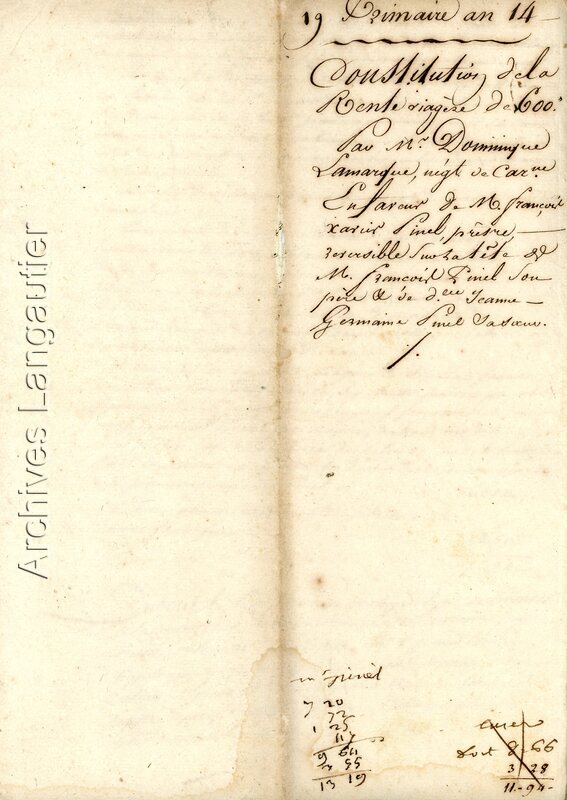 19 frimaire an 14 —
Constitution de la
Rente viagère de 600.
Par Mr. Dominique
Lamarque, négt. de Carne
En faveur de M. françois
xavier Pinel, prêtre —
reversible sur la tête de
M. françois Pinel son
père & de d.lle Jeanne —
Germaine Pinel sa sœur.
Archives Langautier
mr pinel
7 20
72
1 25
9 64
3 55
13 19
doit 8 - 66
3 28
11 - 94 -